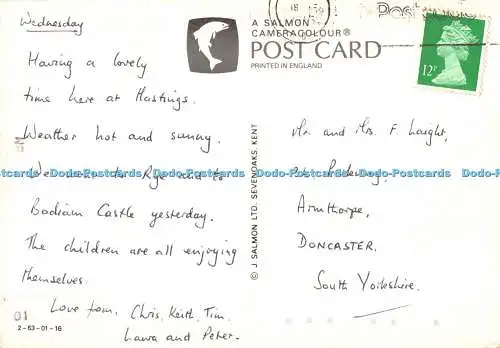 Wednesday
Having a lovely
time here at Hastings.
Weather hot and sunny.
We went to Rye and to
Bodiam Castle yesterday.
The children are all enjoying
themselves.
Love from, Chris, Keith, Tim,
Laura and Peter.
01
2-63-01-16
A SALMON
CAMERACOLOUR®
POST CARD
PRINTED IN ENGLAND
© J. SALMON LTD. SEVENOAKS, KENT
12P
Mr. and Mrs. F. Laight,
Armthorpe,
DONCASTER,
South Yorkshire.
Dodo-Postcards Dodo-Postcards Dodo-Postcards Dodo-Postcards Dodo-Postcards